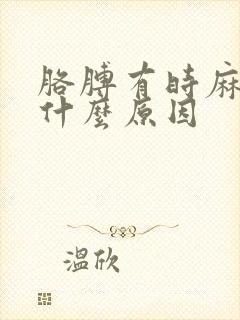 胳膊有時麻
什麼原因
溫欣